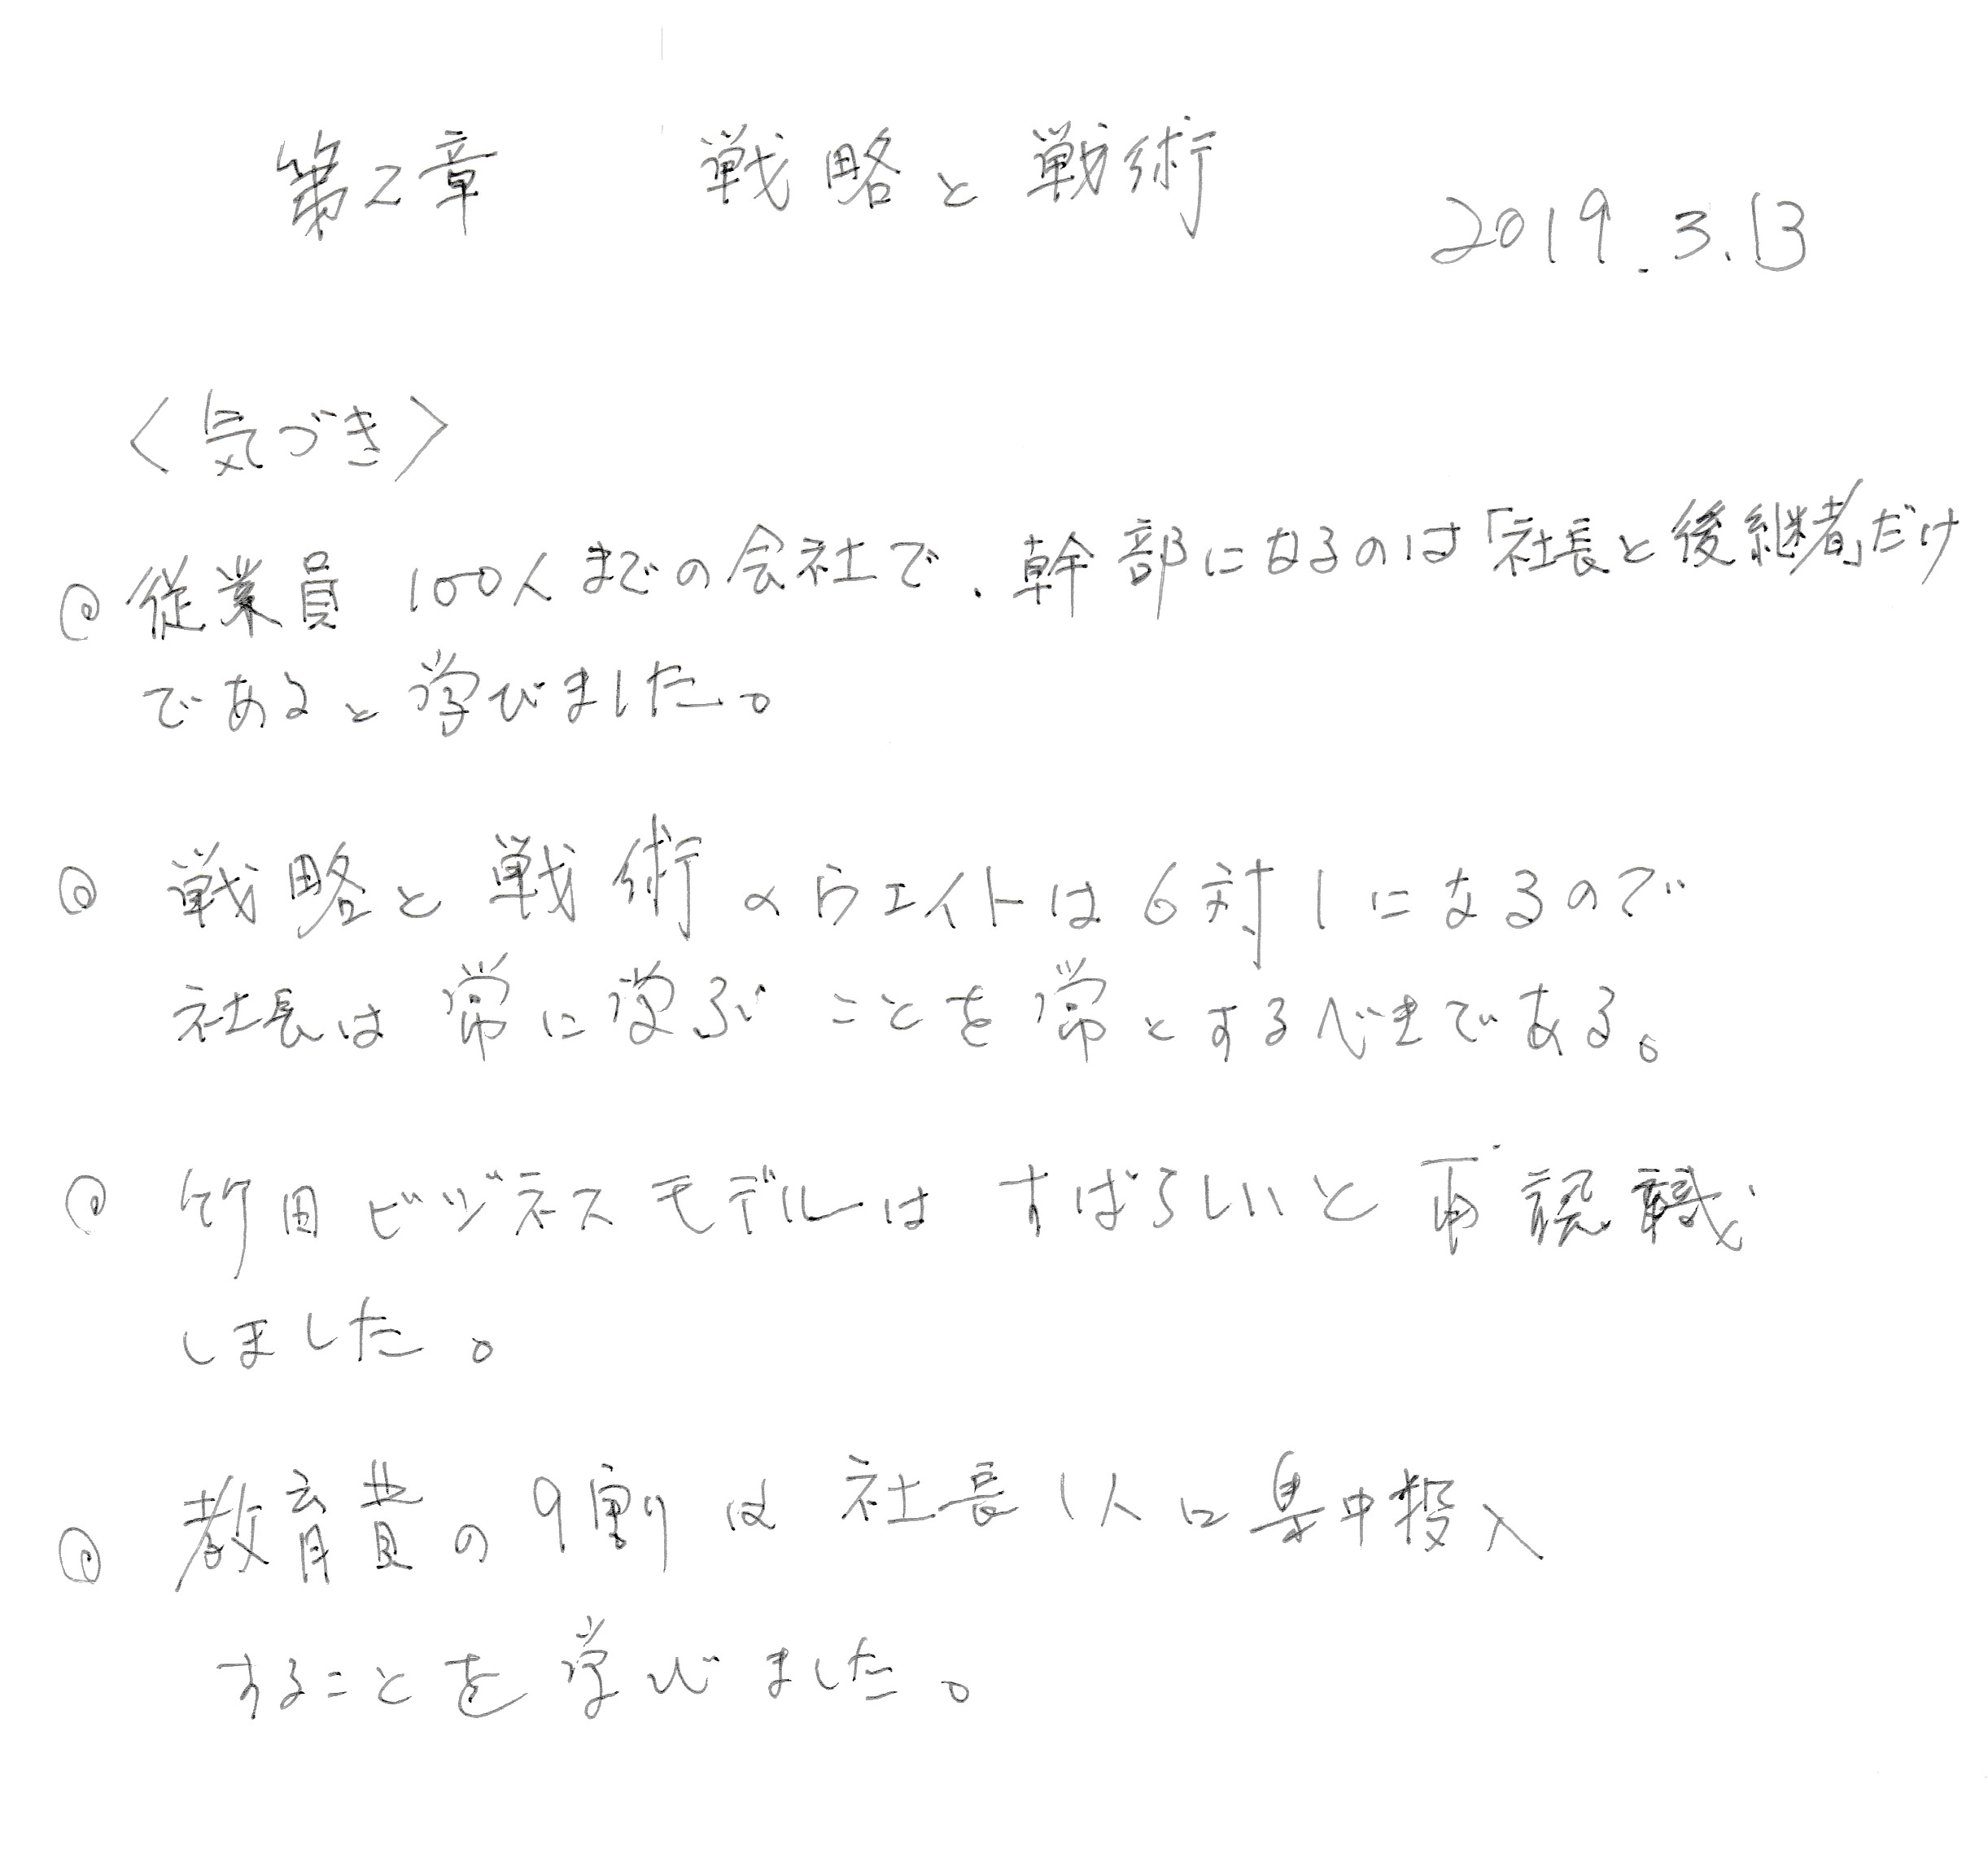 第2章 戦略と戦術
2019.3.13
〈気づき〉
◎従業員 100人までの会社で、幹部になるのは「社長と後継者」だけ
であると学びました。
◎ 戦略と戦術のウエイトは6対1になるので
社長は常に学ぶことを常とするべきである。
◎ 竹田ビジネスモデルは すばらしいと再認識
しました。
◎ 教育費の9割は社長1人に集中投入
することを学びました。